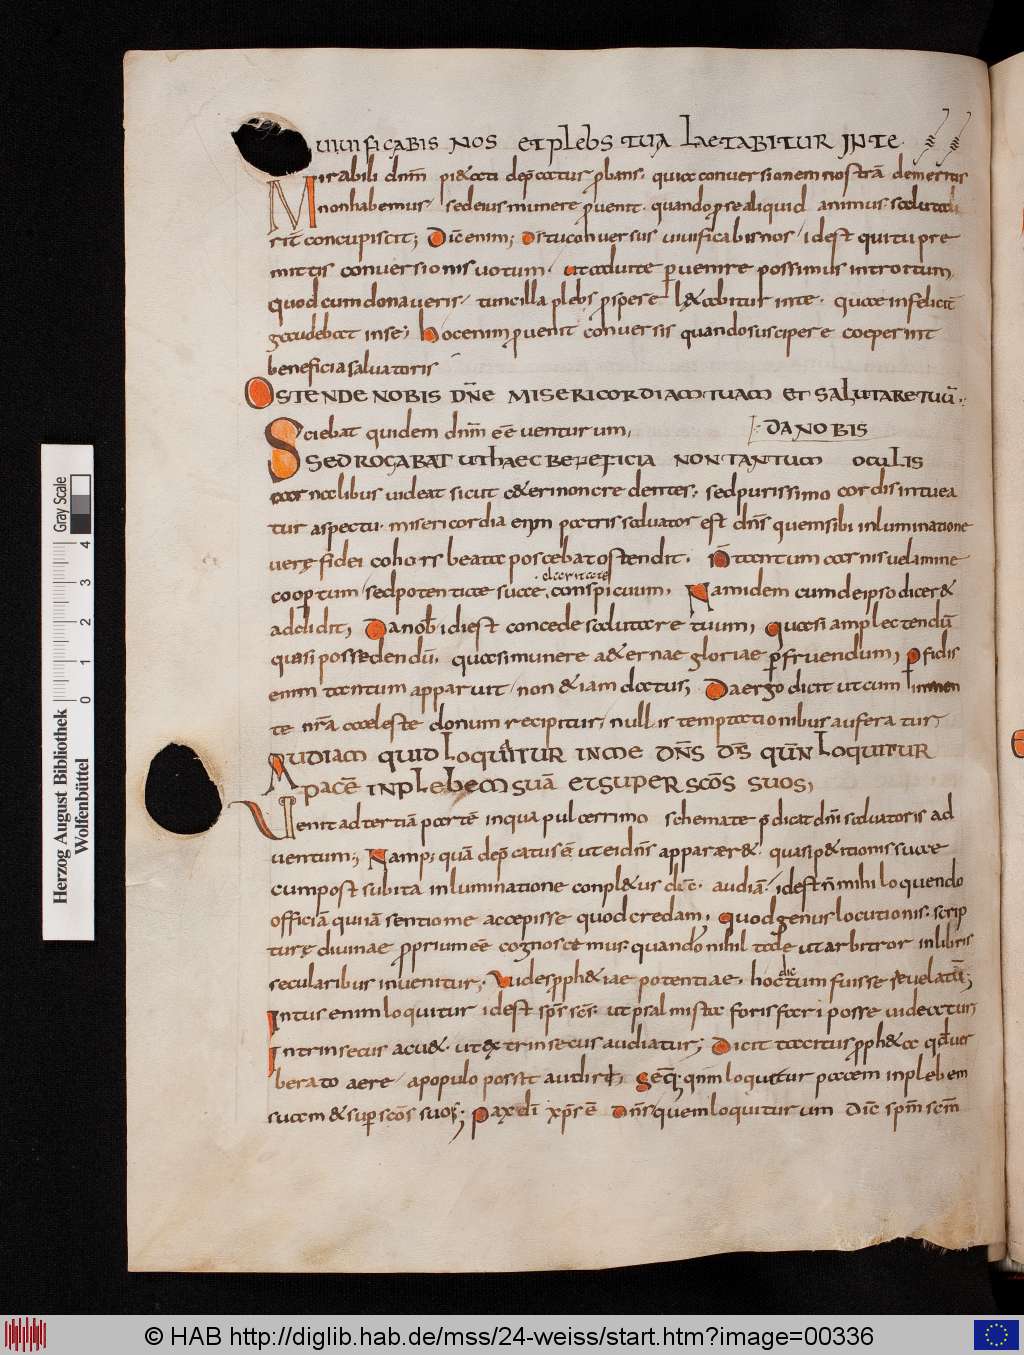 uiuificabis nos et plebs tua laetabitur in te
Mirabili dnm̄ pi&ati dep̄catur p̄bans. quia conuersionem nostrā demeritis
non habemus/ sed eius munere p̄uenit. quando p̄se aliquid animus salutari
concupiscit; Dic̄ enim; ds tu conuersus uiuificabis nos/ idest qui tu pre
mittis conuersionis uotum. ut aduite p̄uenire possimus introitum,
quod cum donaueris/ tunc illa plebs p̄spere lęabitur inte. quae infelicit̄
gaudebat inse; hoc enim p̄uenit conuersis quando suscipere coeperint
beneficia saluatoris
OSTENDE NOBIS DN̄E MISERICORDIAM TUAM ET SALUTARE TUŪ.
Sciebat quidem dnm̄ eē uenturum, DA NOBIS
SED ROGABAT UT HAEC BENEFICIA NON TANTUM OCULIS
carnalibus uideat sicut c&eri non credentes; sed purissimo cordis intuea
tur aspectu. misericordia enim patris saluator est dn̄s quem sibi inluminatione
uerę fidei cohors beata poscebat ostendit. N tantum carnis uelamine
coopertum/ sed potentiae suae claritate conspicuum, Nam idem cum de ipso dicer&
addidit, Da nob̄ idiest concede salutare tuum, quasi amplectendū
quasi possedendū. quasi munere a&ernae gloriae p̄fruendum, Pfidis
enim tantum apparuit/ non &iam datus; Da ergo dicit ut cum
te nr̄a caeleste donum recipitur, nullis temptationibus auferatur,
AUDIAM QUID LOQUATUR IN ME DN̄S DS̄ QŪN LOQUITUR
PACĒ IN PLEBEM SUĀ ET SUPER SCŌS SUOS,
Venit ad tertiā partē in qua pulcerrimo schemate p̄dicat dnī saluatoris ad
uentum; Namp; quā dep̄catus ē ut ei dn̄s apparer&. quasi p&itionis suae
cum post subita inluminatione conpl&us dic̄. audiā/ idest n̄ mihi loquendo
officiā quiiā sentio me accepisse quod credam, quod genus locutionis. scrip
turę diuinae p̄prium eē cognoscemus; quando nihil tale ut arbitror in libris
secularibus inuenitur; Vides pph&iae potentiae, hoc dictum fuisse reuelatū;
Intus enim loquitur idest sps̄ scs̄. ut psalmista foris fari posse uideatur,
Intrinsecus acu&. ut extrinsecus audiatur; Dicit tacitus p̄ph&a qd̄ uer
berato aere/ a populo possit audiri, Seq̄. qnm̄ loquetur pacem in plebem
suaem & sup scōs suos; Pax dī xps̄ ē Dn̄s quem loquiturum Dic̄ spm̄ scm̄
Gray Scale
0 1 2 3 4
Herzog August Bibliothek
Wolfenbüttel
© HAB http://diglib.hab.de/mss/24-weiss/start.htm?image=00336